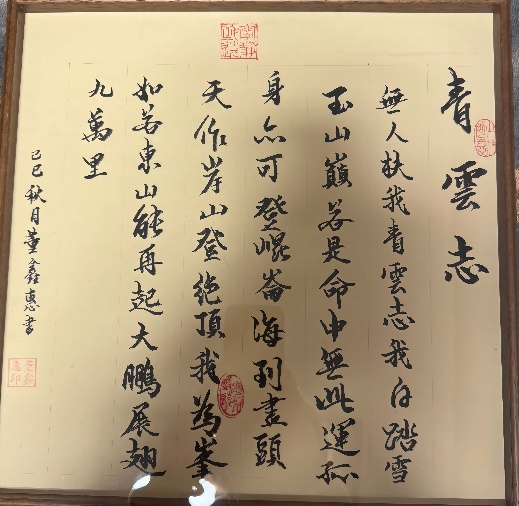 青雲志
無人扶我青雲志我自踏雪
至山巔若是命中無此運孤
身亦可登崐崙海到盡頭
天作岸山登絶頂我為峯
如若東山能再起大鵬展翅
九萬里
己巳秋月董鑫惠書